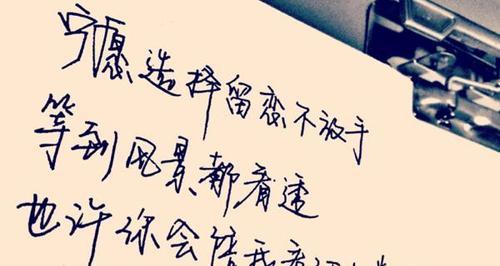 宁愿选择留恋不放手
等到风景都看透
也许你会陪我看